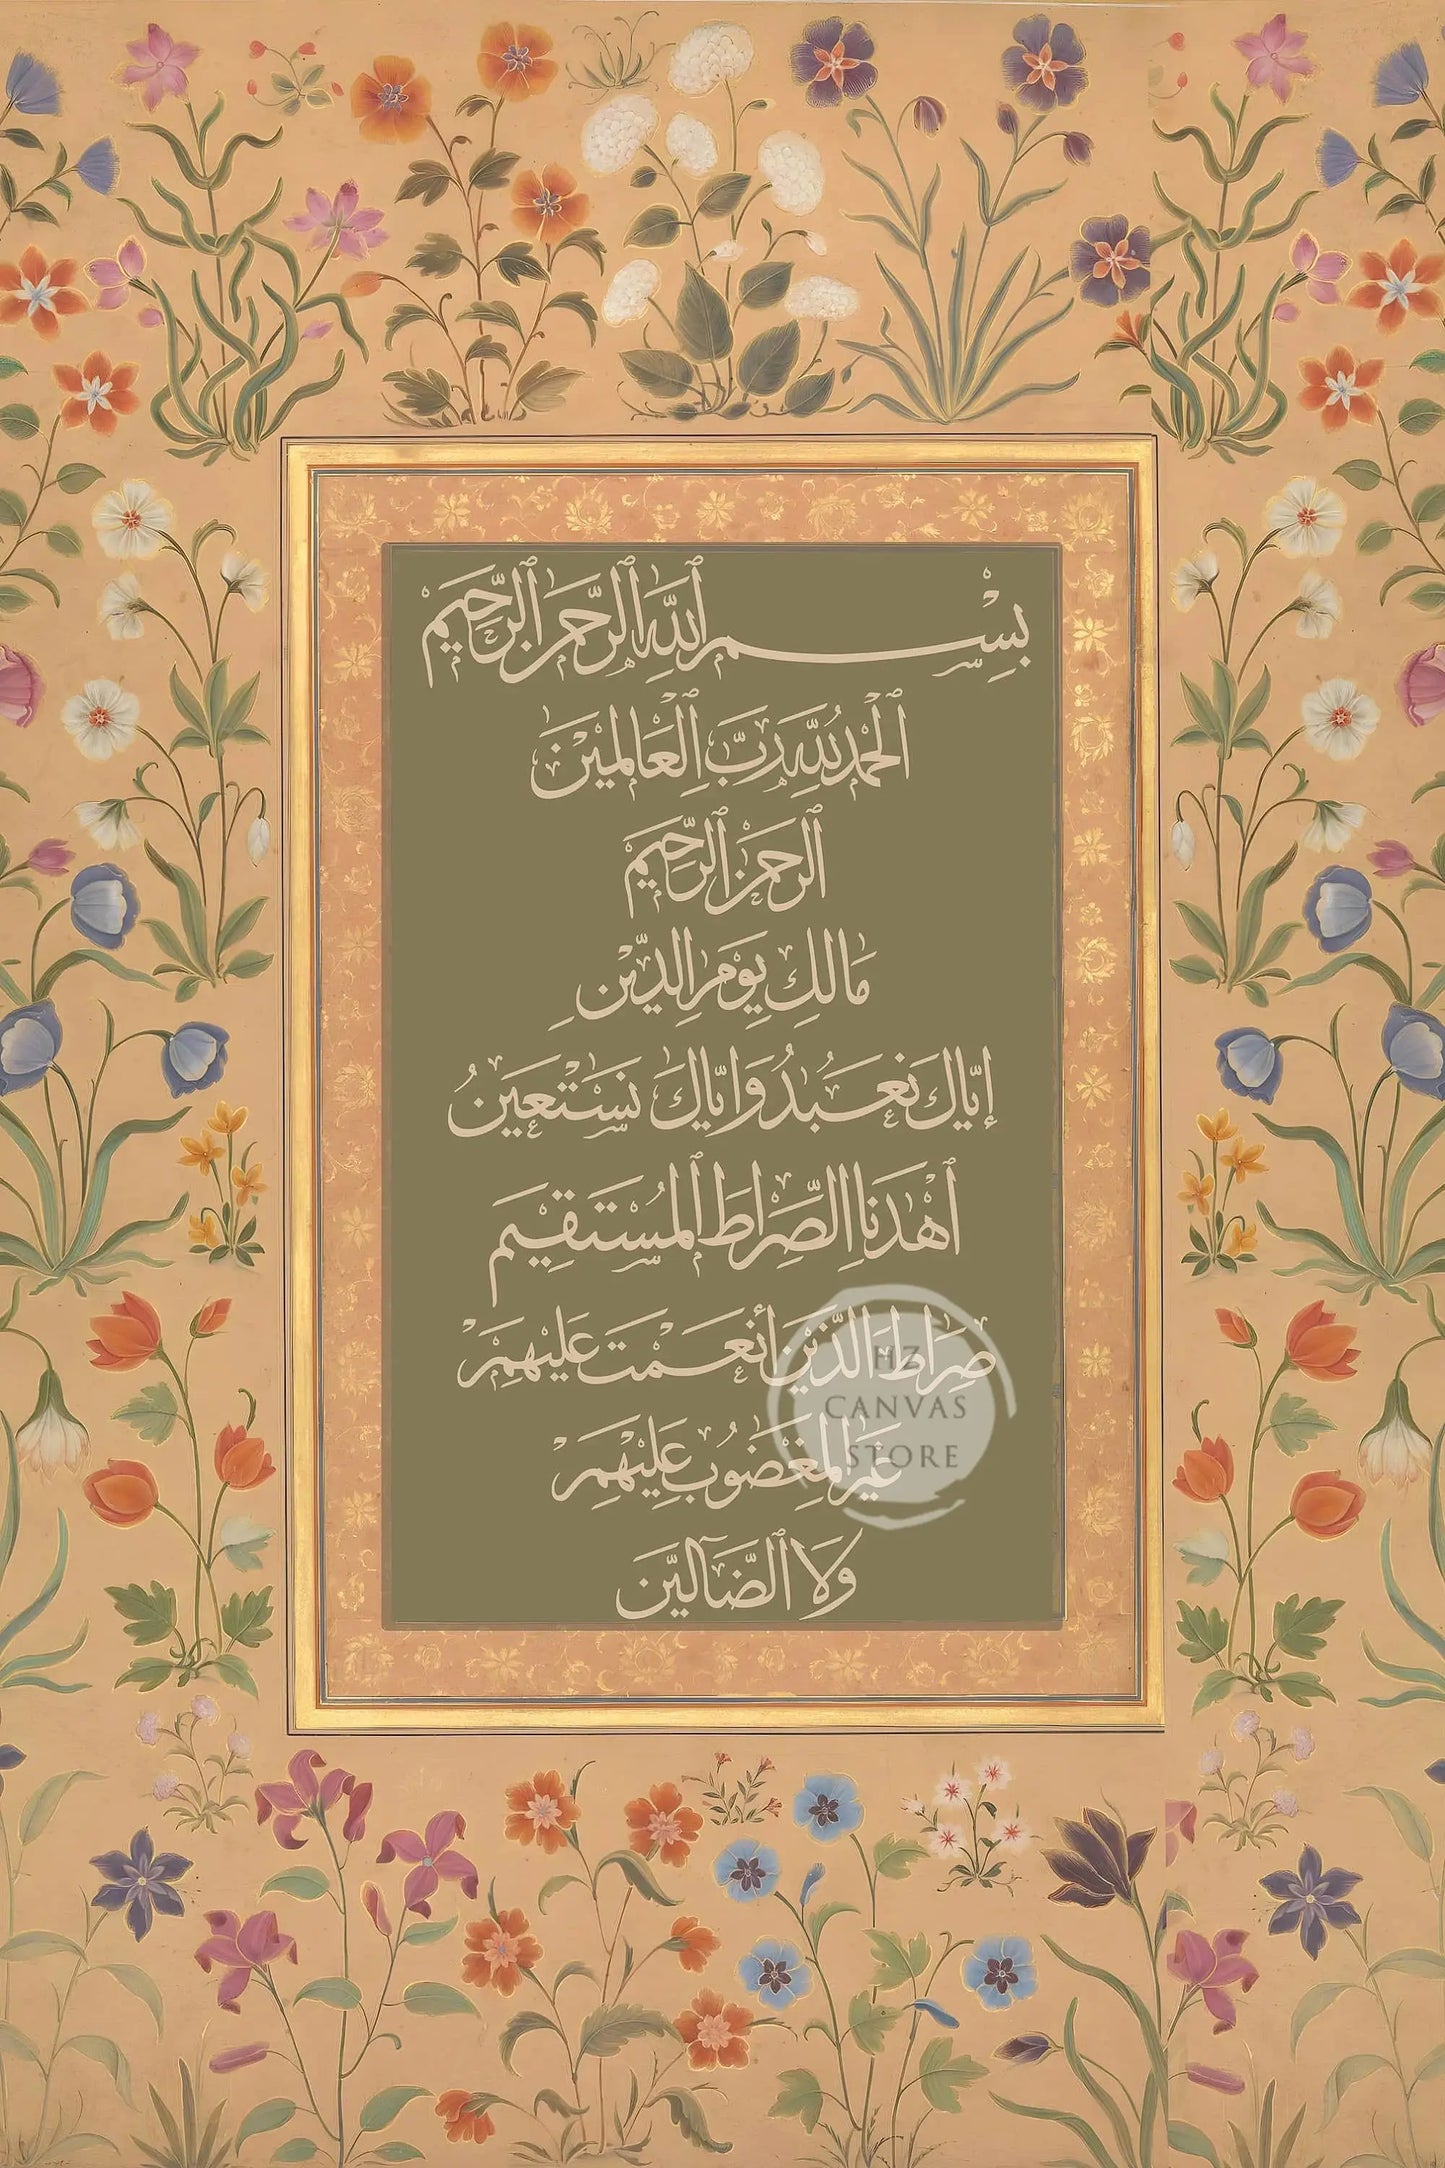 بِسْمِ ٱللَّهِ ٱلرَّحْمَنِ ٱلرَّحِيمِ
ٱلْحَمْدُ لِلَّهِ رَبِّ ٱلْعَالَمِينَ
ٱلرَّحْمَنِ ٱلرَّحِيمِ
مَالِكِ يَوْمِ الدِّينِ
إِيَّاكَ نَعْبُدُ وَإِيَّاكَ نَسْتَعِينُ
ٱهْدِنَا الصِّرَاطَ ٱلْمُسْتَقِيمَ
صِرَاطَ الَّذِينَ أَنْعَمْتَ عَلَيْهِمْ
غَيْرِ الْمَغْضُوبِ عَلَيْهِمْ
وَلَا ٱلضَّآلِّينَ
HZ
CANVAS
STORE